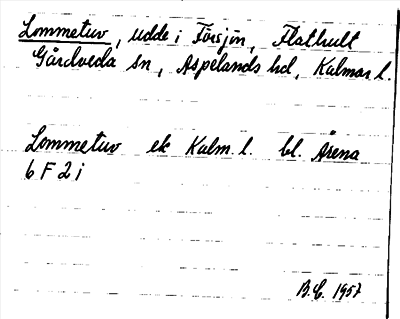 Lommetuv, udde i Försjön, Flathult
Gårdveda sn, Aspelands hd, Kalmar l.
Lommetuv ek Kalm. l. bl. Årena
6 F 2 i
B.E. 1957